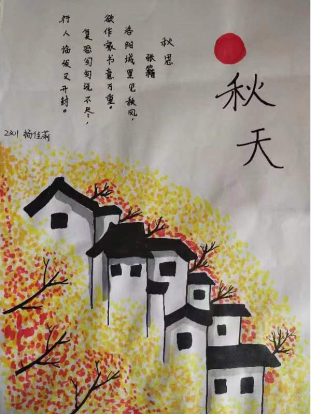 秋天
秋思
张籍
洛阳城里见秋风，
欲作家书意万重。
复恐匆匆说不尽，
行人临发又开封。